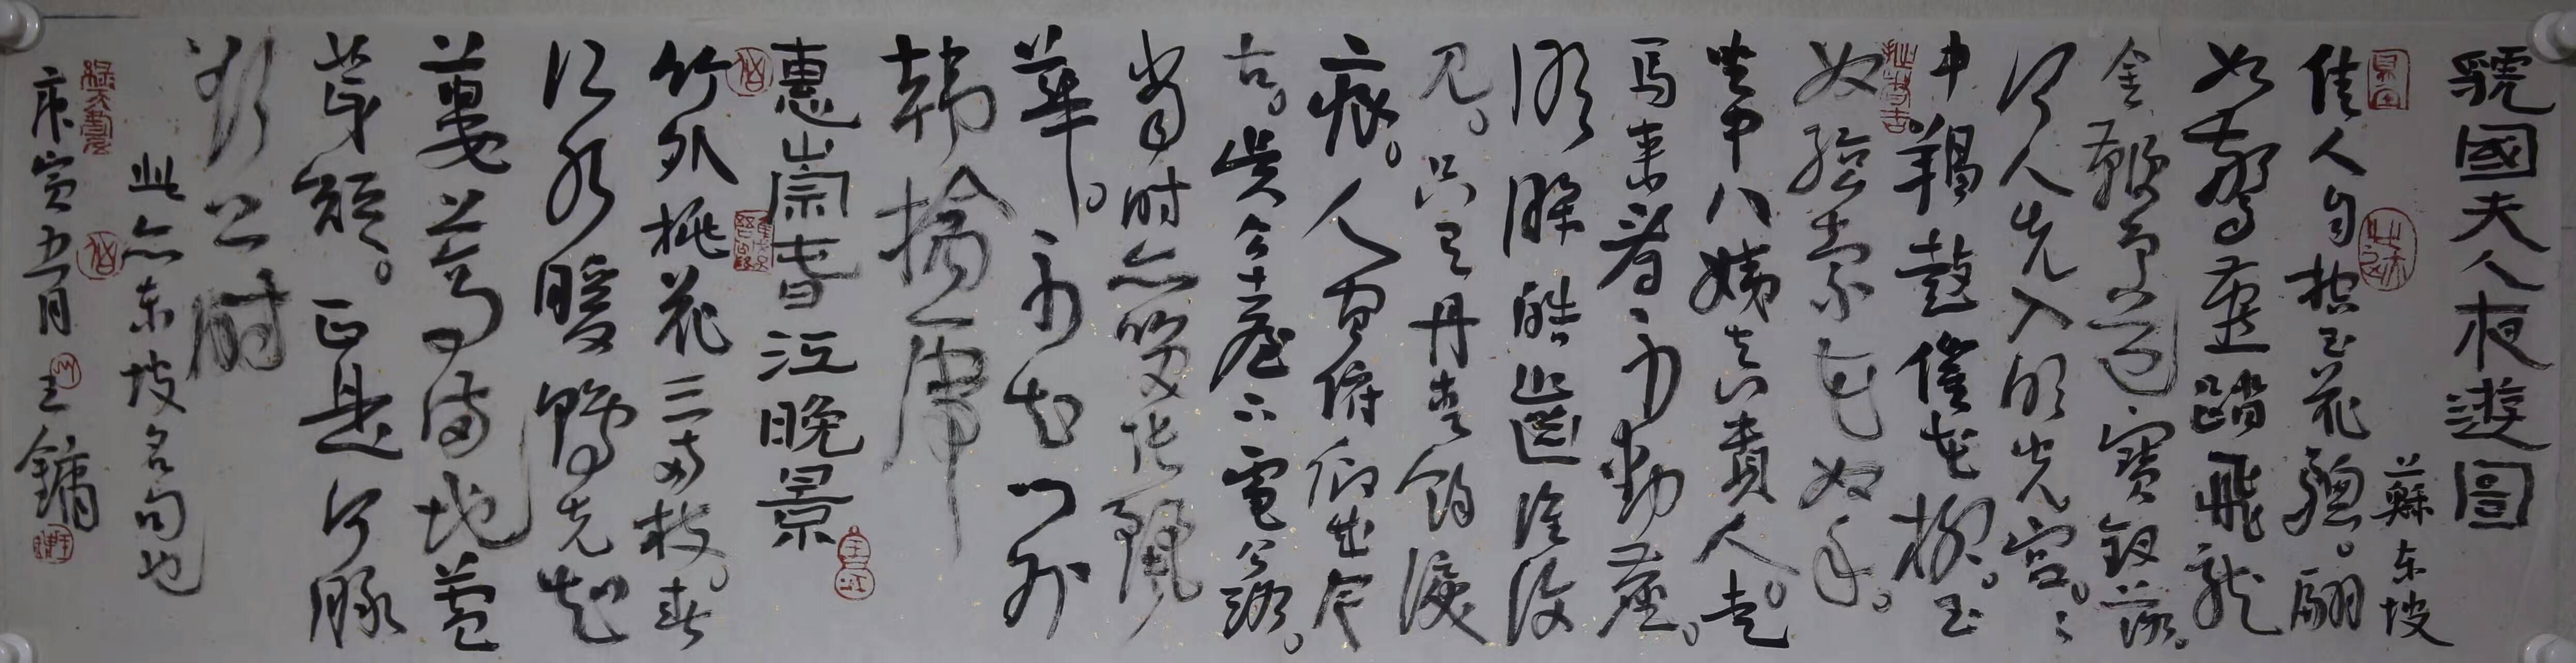 虢國夫人夜遊圖
蘇东坡
佳人自控玉花骢。翩
如惊燕踏飛龙
金鞭争道寶钗落。
何人先入明光宫。〻
中羯鼓催花柳。玉
奴弦索花奴手。
坐中八姨真貴人。走
马来看不動塵。
明眸皓齒谁復
见。只有丹青馀淚
痕。人间俯仰成今
古。吴公台下雷塘路。
当时亦笑张麗
華。不知门外
韩擒虎
惠崇春江晚景
竹外桃花三两枝。春
江水暖鸭先知
蔞蒿满地芦
芽短。正是河豚
欲上时
此亦东坡名句也
庚寅五月 王镛